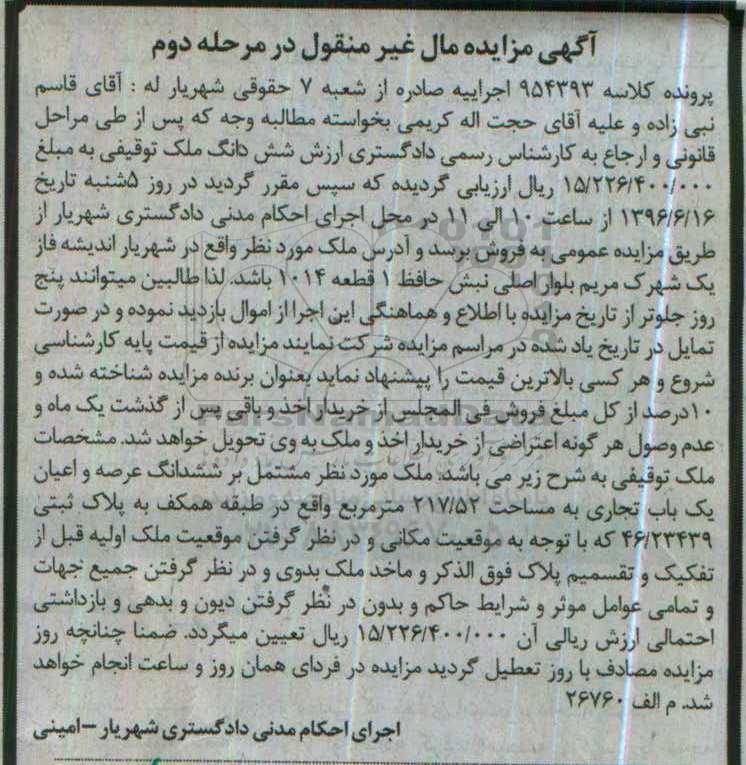 آگهی مزایده مال غیر منقول در مرحله دوم
پرونده کلاسه ۹۵۴۳۹۳ اجراییه صادره از شعبه ۷ حقوقی شهریار له : آقای قاسم
نبی زاده و علیه آقای حجت اله کریمی بخواسته مطالبه وجه که پس از طی مراحل
قانونی و ارجاع به کارشناس رسمی دادگستری ارزش شش دانگ ملک توقیفی به مبلغ
۱۵/۲۲۶/۴۰۰/۰۰۰ ریال ارزیابی گردیده که سپس مقرر گردید در روز ۵شنبه تاریخ
۱۳۹۶/۶/۱۶ از ساعت ۱۰ الی ۱۱ در محل اجرای احکام مدنی دادگستری شهریار از
طریق مزایده عمومی به فروش برسد و آدرس ملک مورد نظر واقع در شهریار اندیشه فاز
یک شهرک مریم بلوار اصلی نبش حافظ ۱ قطعه ۱۰۱۴ باشد. لذا طالبین میتوانند پنج
روز جلوتر از تاریخ مزایده با اطلاع و هماهنگی این اجرا از اموال بازدید نموده و در صورت
تمایل در تاریخ یاد شده در مراسم مزایده شرکت نمایند مزایده از قیمت پایه کارشناسی
شروع و هر کسی بالاترین قیمت را پیشنهاد نماید بعنوان برنده مزایده شناخته شده و
۱۰درصد از کل مبلغ فروش فی المجلس از خریدار اخذ و باقی پس از گذشت یک ماه و
عدم وصول هر گونه اعتراضی از خریدار اخذ و ملک به وی تحویل خواهد شد. مشخصات
ملک توقیفی به شرح زیر می باشد: ملک مورد نظر مشتمل بر ششدانگ عرصه و اعیان
یک باب تجاری به مساحت ۲۱۷/۵۲ مترمربع واقع در طبقه همکف به پلاک ثبتی
۴۶/۲۳۴۳۹ که با توجه به موقعیت مکانی و در نظر گرفتن موقعیت ملک اولیه قبل از
تفکیک و تقسمیم پلاک فوق الذکر و ماخد ملک بدوی و در نظر گرفتن جمیع جهات
و تمامی عوامل موثر و شرایط حاکم و بدون در نظر گرفتن دیون و بدهی و بازداشتی
احتمالی ارزش ریالی آن ۱۵/۲۲۶/۴۰۰/۰۰۰ ریال تعیین میگردد. ضمنا چنانچه روز
مزایده مصادف با روز تعطیل گردید مزایده در فردای همان روز و ساعت انجام خواهد
شد. م الف ۲۶۷۶۰
اجرای احکام مدنی دادگستری شهریار –امینی